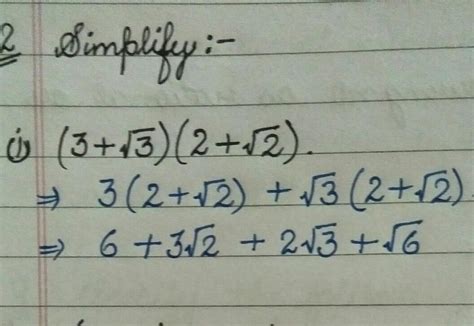 2 Simplify:-
i) (3+√3)(2+√2).
⇒ 3(2+√2) + √3(2+√2)
⇒ 6 + 3√2 + 2√3 + √6